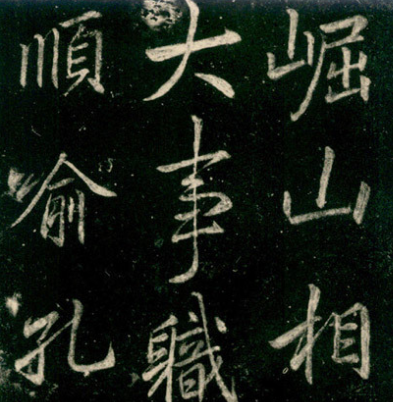 崛山相
大事職
順喻孔